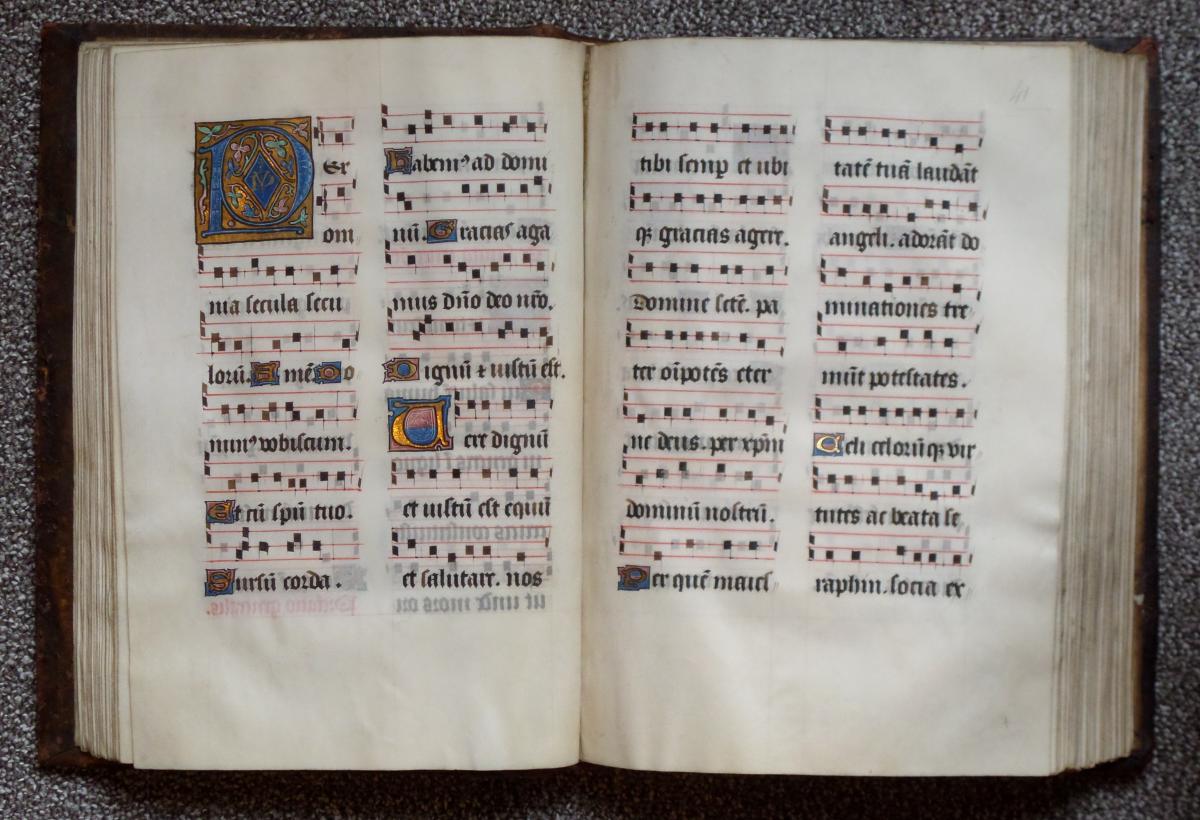 Per
om
nia secula secu
loru̅. Ame̅. Do
minꝰ vobiscum.
Et cu̅ spu̅ tuo.
Sursu̅ corda.
Habemꝰ ad domi
nu̅. Gracias aga
mus dn̅o deo nr̅o.
Dignu̅ ⁊ iustu̅ est.
Uere dignu̅
et iustu̅ est equu̅
et salutare. nos
41
tibi semꝑ et ubi
qꝫ gracias agere.
Domine sc̅te. pa
ter oi̅pote̅s eter
ne deus. per xpm̅
dominu̅ nostru̅.
Per que̅ maies
tate̅ tua̅ lauda̅t
angeli. adora̅t do
minationes tre
mu̅t potestates.
Celi celoru̅qꝫ vir
tutes ac beata se
raphin. socia ex